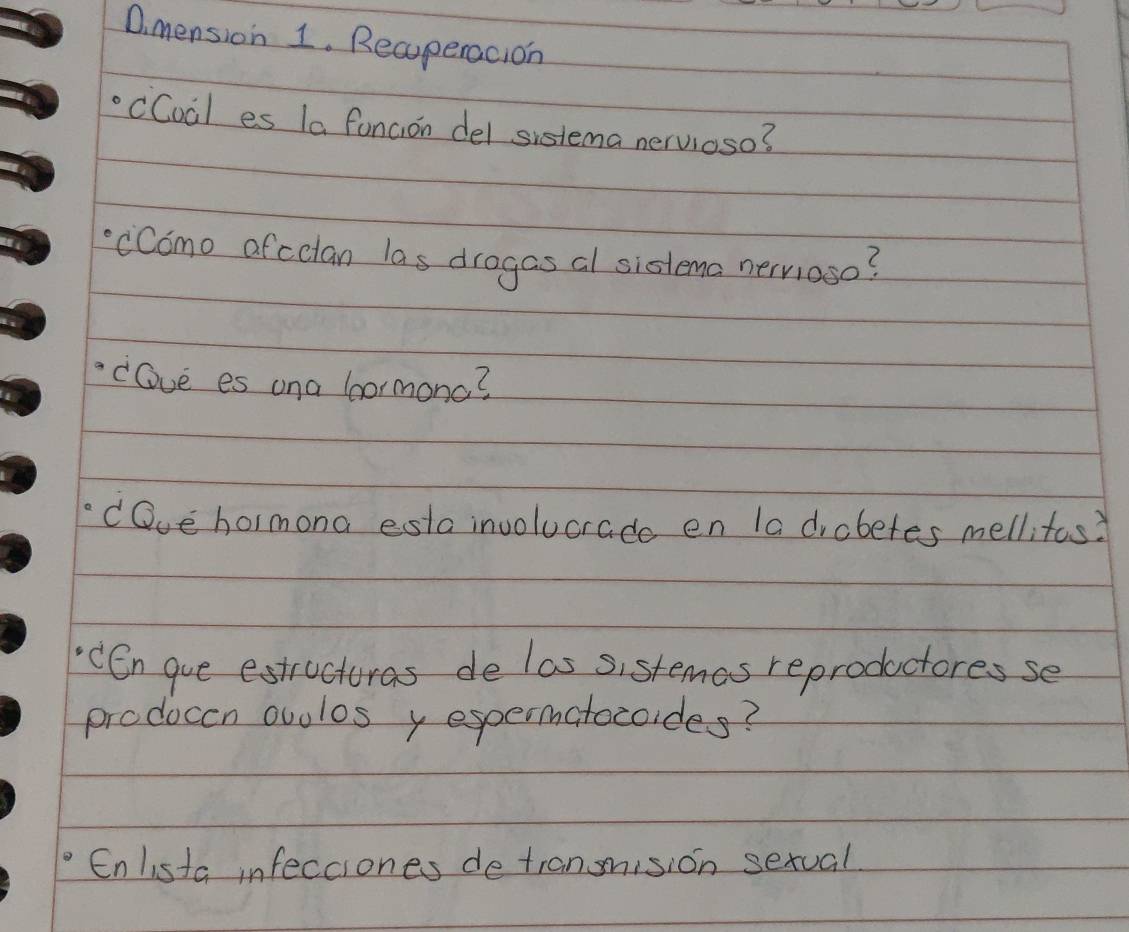 Dimension 1. Recuperación
• ¿Cuál es la función del sistema nervioso?
• ¿Cómo afectan las drogas al sistema nervioso?
• ¿Qué es una hormona?
• ¿Qué hormona esta involucrada en la diabetes mellitus?
• ¿En que estructuras de los sistemas reproductores se
producen ovulos y espermatozoides?
• Enlista infecciones de transmisión sexual.